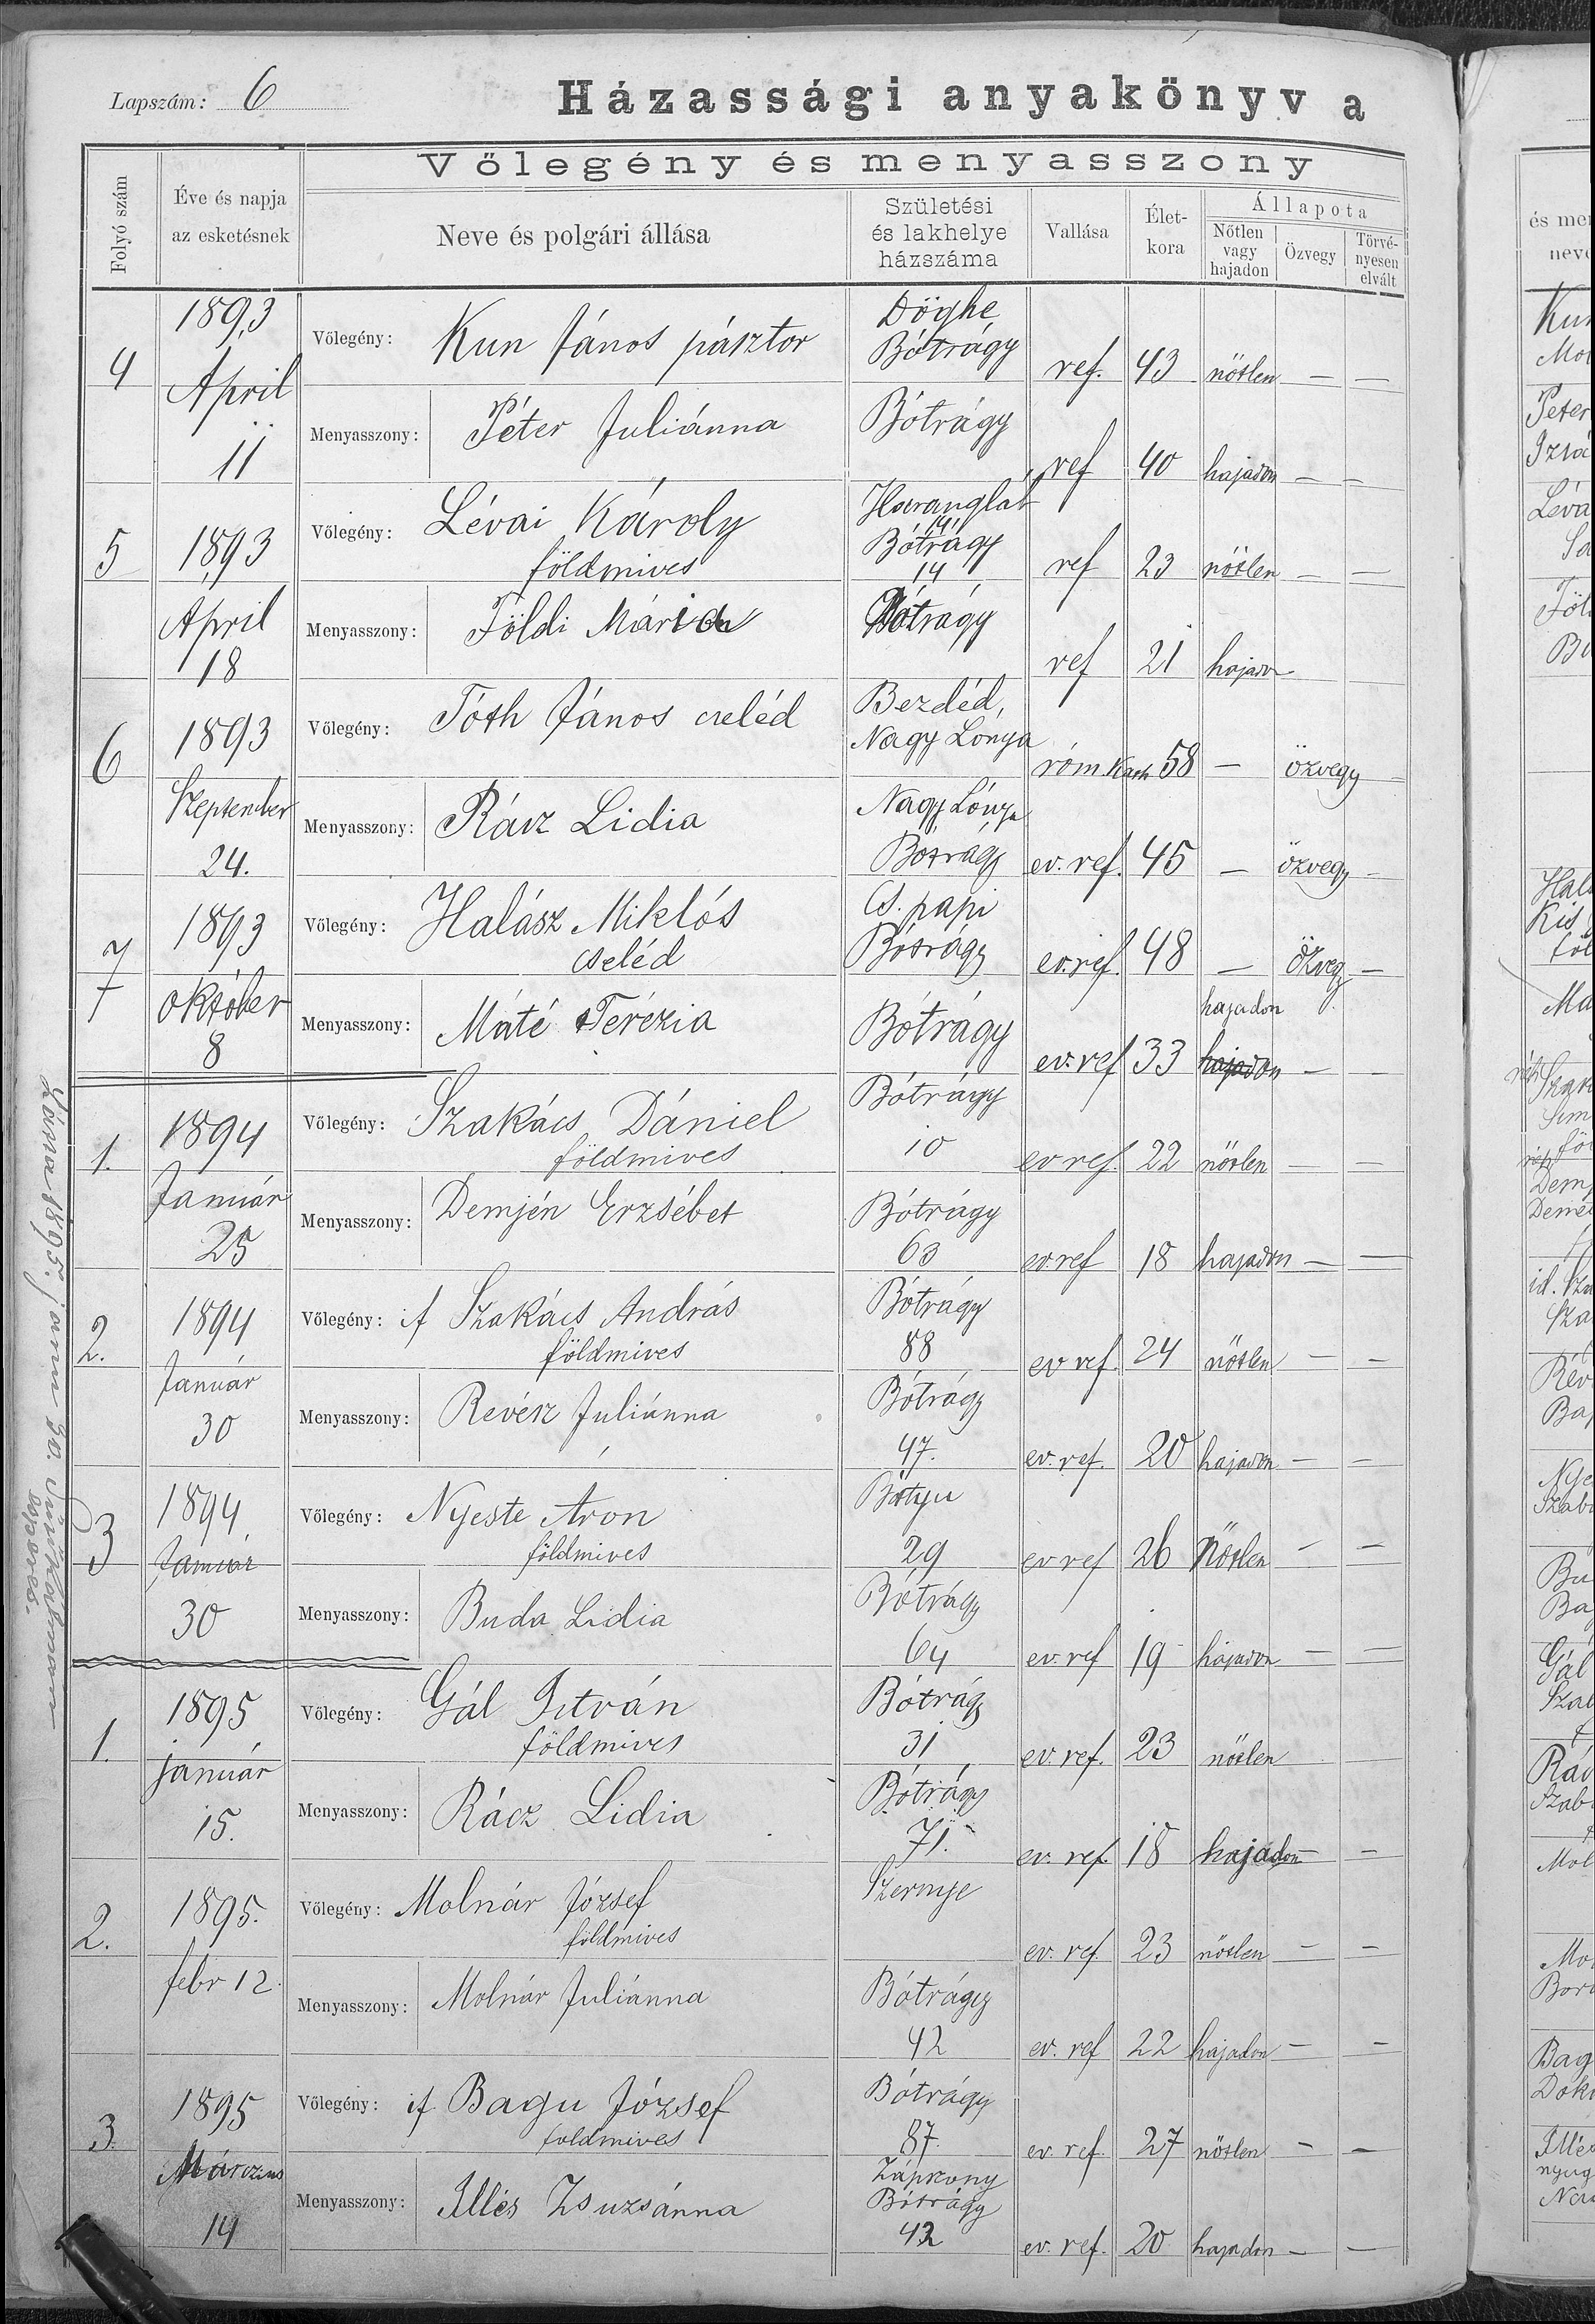 Lapszám: 6
Házassági anyakönyv a
Vőlegény és menyasszony
Folyó szám
Éve és napja
az esketésnek
Neve és polgári állása
Születési
és lakhelye
házszáma
Vallása
Élet-
kora
Állapota
Nőtlen
vagy
hajadon
Özvegy
Törvé-
nyesen
elvált
4
1893
April
11
Vőlegény: Kun János pásztor
Döghe
Bótrágy
ref. 43 nőtlen — —
Menyasszony: Péter Juliánna
Bótrágy
ref 40 hajadon — —
5
1893
April
18
Vőlegény: Lévai Károly
földmives
Haranglab
14
Bótrágy
14
ref 23 nőtlen — —
Menyasszony: Földi Mária
Bótrágy
ref 21 hajadon
6
1893
Szeptember
24.
Vőlegény: Tóth János cseléd
Bezdéd,
Nagy Lónya
róm. kath 58 — özvegy —
Menyasszony: Rácz Lidia
Nagy Lónya
Botrágy
ev. ref. 45 — özvegy —
7
1893
október
8
Vőlegény: Halász Miklós
cseléd
Cs. papi
Bótrágy
ev. ref. 48 — özvegy —
Menyasszony: Máté Terézia
Bótrágy
hajadon
ev. ref 33 hajadon — —
1.
1894
Január
25
Vőlegény: Szakács Dániel
földmives
Bótrágy
10
ev ref. 22 nőtlen — —
Menyasszony: Demjén Erzsébet
Bótrágy
63
ev ref 18 hajadon — —
2.
1894
Január
30
Vőlegény: if Szakács András
földmives
Bótrágy
88
ev ref. 24 nőtlen — —
Menyasszony: Revész Juliánna
Bótrágy
47.
ev. ref. 20 hajadon — —
3
1894
Január
30
Vőlegény: Nyeste Áron
földmives
Bótyu
29
ev ref 26 Nőtlen — —
Menyasszony: Buda Lidia
Bótrágy
64
ev. ref 19 hajadon — —
1.
1895
január
15.
Vőlegény: Gál István
földmives
Bótrágy
31
ev. ref. 23 nőtlen —
Menyasszony: Rácz Lidia
Bótrágy
71.
ev. ref. 18 hajadon — —
2.
1895.
febr 12.
Vőlegény: Molnár József
földmives
Szernye
ev. ref. 23 nőtlen — —
Menyasszony: Molnár Juliánna
Bótrágy
42
ev. ref 22 hajadon — —
3.
1895
Márczius
14
Vőlegény: if Bagu József
földmives
Bótrágy
87.
ev. ref. 27 nőtlen — —
Menyasszony: Illés Zsuzsánna
Zápszony
Bótrágy
42
ev. ref. 20 hajadon — —
1895.
30.
esperes.
és me
neve
Kun
Mol
Péter
Léva
Föl
Hal
Kis
föl
Má
Szak
Dem
id. Sza
Sza
Rév
Nye
Szab
Bu
Gál
Szab
Rác
Szab
Mol
Mol
Bor
Bag
Illés